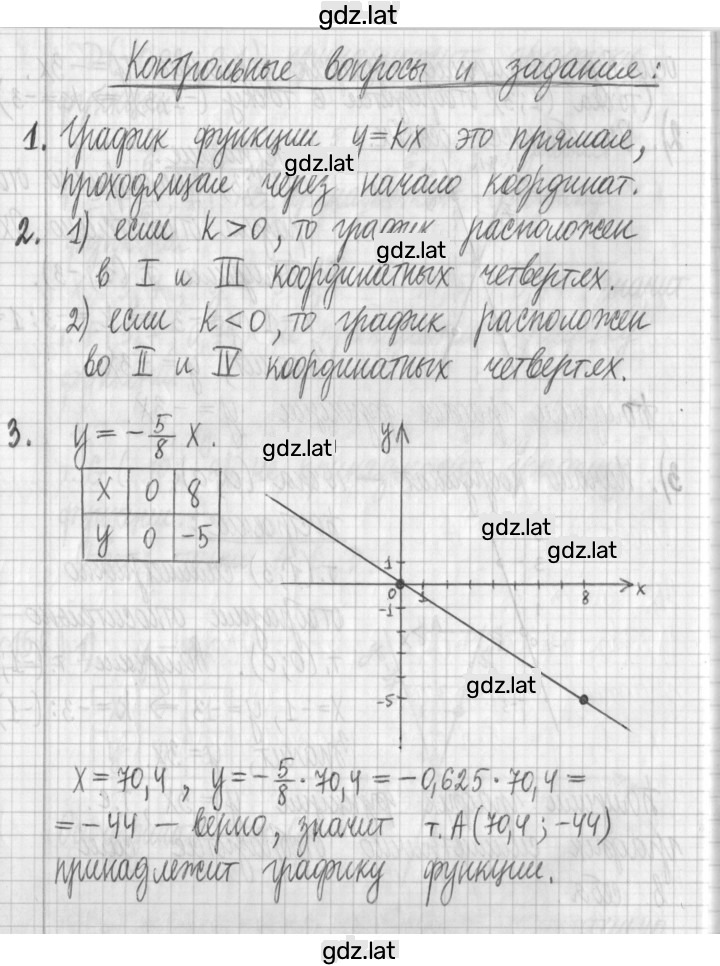 gdz.lat
Контрольные вопросы и задания:
1. График функции y=kx это прямая,
gdz.lat
проходящая через начало координат.
2. 1) если k>0, то график расположен
gdz.lat
в I и III координатных четвертях.
2) если k<0, то график расположен
во II и IV координатных четвертях.
3. y = -5/8 x.
gdz.lat
y
x 0 8
y 0 -5
gdz.lat
gdz.lat
1
0 1 8 x
-1
gdz.lat
-5
x=70,4, y=-5/8·70,4=-0,625·70,4=
=-44 — верно, значит т.А(70,4;-44)
принадлежит графику функции.
gdz.lat